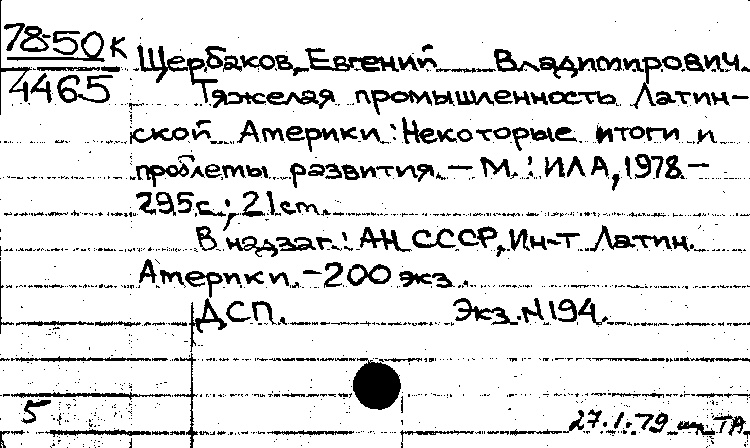 78-50К
4465
Щербаков, Евгений Владимирович.
Тяжелая промышленность Латин-
ской Америки: Некоторые итоги и
проблемы развития. — М.: ИЛА, 1978 —
295с.; 21cm.
В надзаг.: АН СССР, Ин-т Латин.
Америки. - 200 экз.
ДСП. Экз. N194.
5
27.1.79